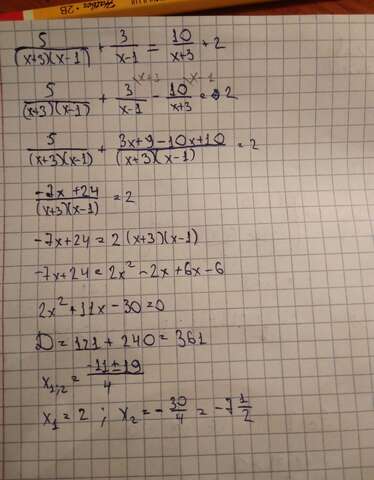 5/((x+3)(x-1)) + 3/(x-1) = 10/(x+3) + 2
x+3 x-1
5/((x+3)(x-1)) + 3/(x-1) - 10/(x+3) = 2
5/((x+3)(x-1)) + (3x+9-10x+10)/((x+3)(x-1)) = 2
(-7x+24)/((x+3)(x-1)) = 2
-7x+24 = 2(x+3)(x-1)
-7x+24 = 2x² - 2x + 6x - 6
2x² + 11x - 30 = 0
D = 121 + 240 = 361
x₁,₂ = (-11±19)/4
x₁ = 2 ; x₂ = -30/4 = -7 1/2